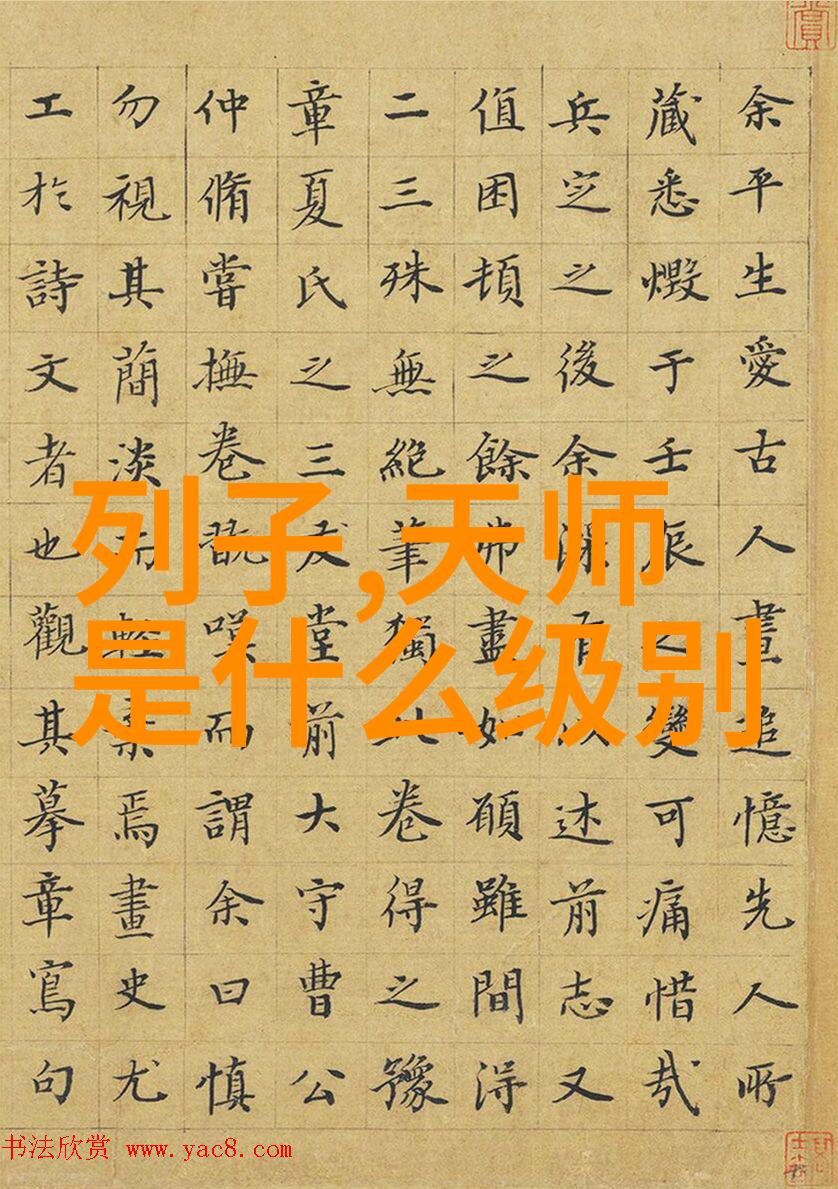 余平生愛古人畫追憶先人所
藏悉燬于壬辰之變可痛惜哉
兵定之後余深有以述前志又
值困頓之餘弗盡如願雖間得
二三殊無絕筆獨此卷得之豫
章夏氏之三友堂前大守曹公
仲脩嘗撫卷翫嘆而謂余曰慎
勿視其簡淡而輕棄焉畫史尤
工於詩文者也觀其摹章寫句
列子,天师
是什么级别
书法欣赏 www.yac8.com